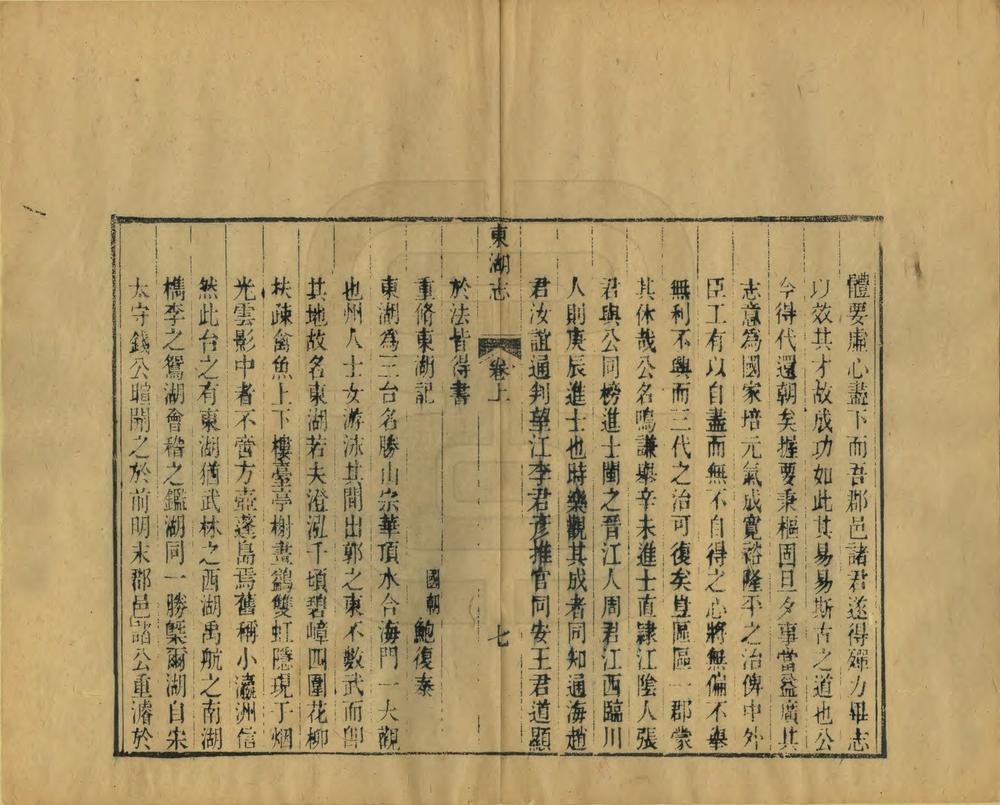 體要肅心盡下而吾郡邑諸君遂得殫力畢志
以效其才故成功如此其易易斯古之道也公
今得代還朝矣握要秉樞固旦夕事當益廣其
志意為國家培元氣成寬裕隆平之治俾中外
臣工有以自盡而無不自得之心將無偏不舉
無利不興而三代之治可復矣豈區區一郡蒙
其休哉公名鳴謙舉辛未進士直隸江陰人張
君與公同榜進士閩之晉江人周君江西臨川
人則庚辰進士也時樂觀其成者同知通海趙
君汝誼通判望江李君彥推官同安王君道顯
東湖志
卷上
七
於法皆得書
重脩東湖記
國朝 鮑復泰
東湖為三台名勝山宗華頂水合海門一大觀
也州人士女游泳其間出郭之東不數武而即
其地故名東湖若夫澄泓千頃碧嶂四圍花柳
扶疎禽魚上下樓臺亭榭畫鷁雙虹隱現于烟
光雲影中者不啻方壺蓬島焉舊稱小瀛洲信
然此台之有東湖猶武林之西湖禹航之南湖
檇李之鴛湖會稽之鑑湖同一勝槩爾湖自宋
太守錢公暄開之於前明末郡邑諸公重濬於